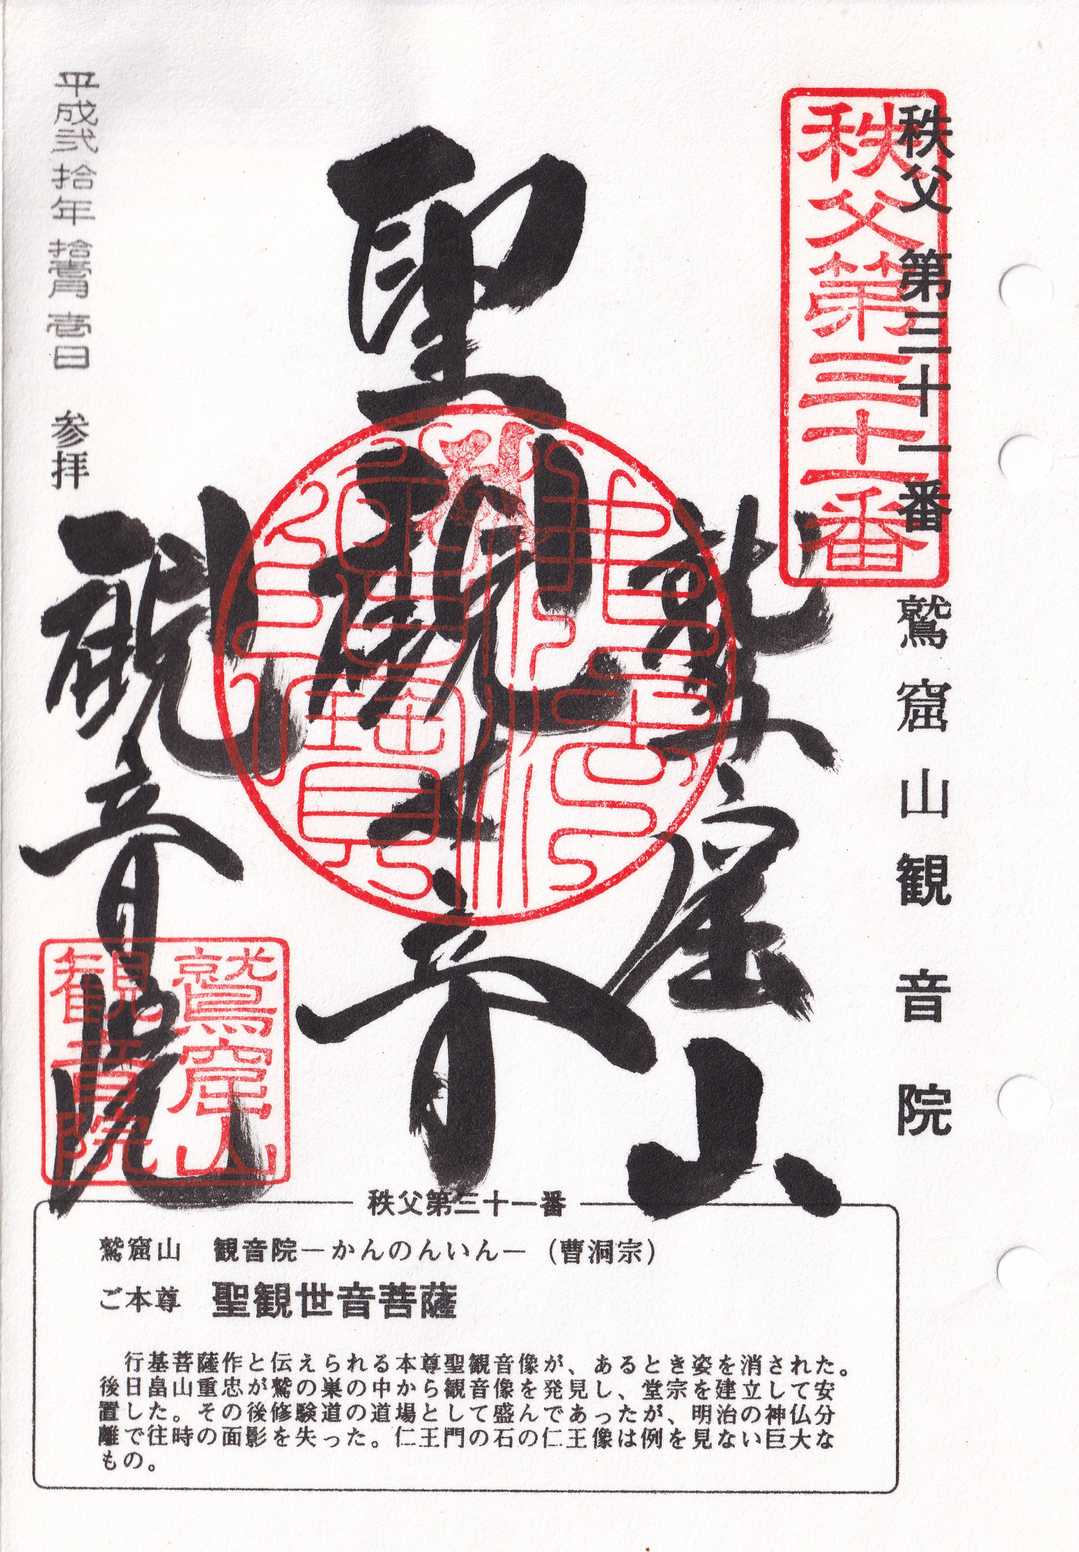 秩父 第三十一番 鷲窟山観音院
秩父第三十一番
鷲窟山
聖観世音
観音院
鷲窟山
観音院
平成弐拾年 拾壹月 壱日 参拝
秩父第三十一番
鷲窟山 観音院－かんのんいん－（曹洞宗）
ご本尊 聖観世音菩薩
行基菩薩作と伝えられる本尊聖観音像が、あるとき姿を消された。
後日畠山重忠が鷲の巣の中から観音像を発見し、堂宗を建立して安
置した。その後修験道の道場として盛んであったが、明治の神仏分
離で往時の面影を失った。仁王門の石の仁王像は例を見ない巨大な
もの。